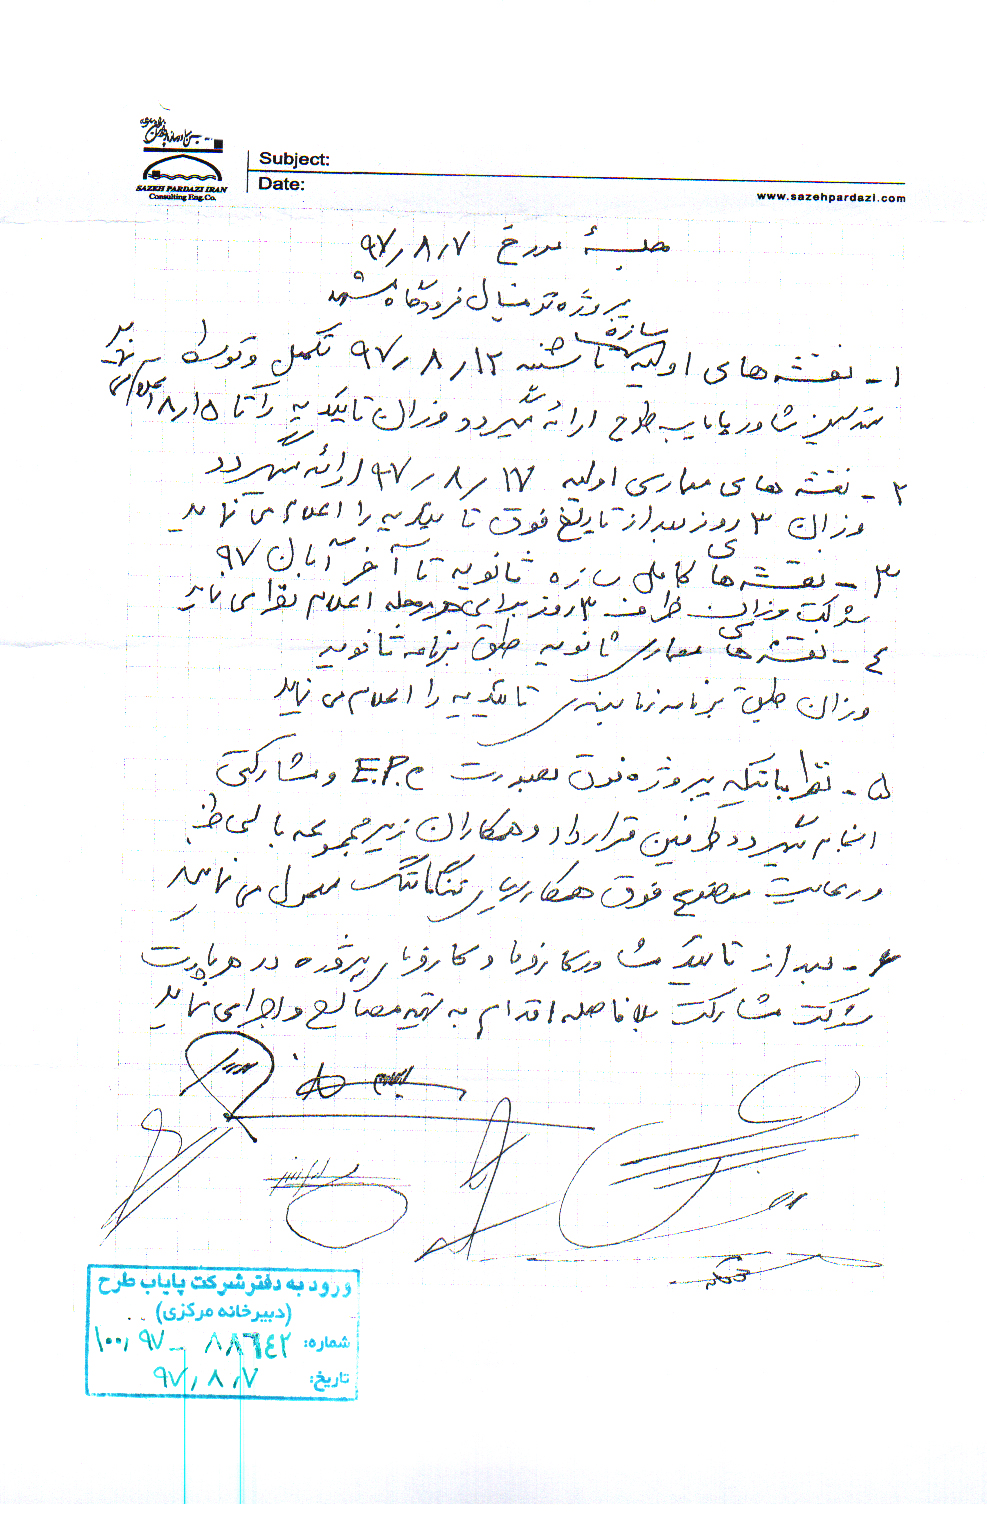 SAZEH PARDAZI IRAN
Consulting Eng.Co.
Subject:
Date:
www.sazehpardazi.com
جلسهٔ مورخ ۹۷٫۸٫۷
پروژه ترمینال فرودگاه مشهد
۱- نقشه های اولیه سازه تا شنبه ۹۷٫۸٫۱۲ تکمیل و توسط
مهندسین مشاور پایاب طرح ارائه میگردد و زران تاییدیه را تا ۸٫۱۵ اعلام می نماید
۲- نقشه های معماری اولیه ۹۷٫۸٫۱۷ ارائه میگردد
وزران ۳ روز بعد از تاریخ فوق تاییدیه را اعلام می نماید
۳- نقشه های کامل سازه ثانویه تا آخر آبان ۹۷
شرکت وزران ظرف ۳ روز برای هر مرحله اعلام نظر می نماید
٤- نقشه های معماری ثانویه طبق برنامه ثانویه
وزران طبق برنامه زمانبندی تاییدیه را اعلام می نماید
۵- نظر باینکه پروژه فوق بصورت E.P.C و مشارکتی
انجام میگردد طرفین قرارداد و همکاران زیرمجموعه با لحاظ
و رعایت موضوع فوق همکاری تنگاتنگ معمول می نمایند
۶- بعد از تایید مشاور کارفرما و کارفرمای پروژه در هر پارت
شرکت مشارکت بلافاصله اقدام به تهیه مصالح و اجرا می نماید
ورود به دفتر شرکت پایاب طرح
(دبیرخانه مرکزی)
شماره: ۱۰۰٫۹۷ - ۸۸٦٤۲
تاریخ: ۹۷٫۸٫۷